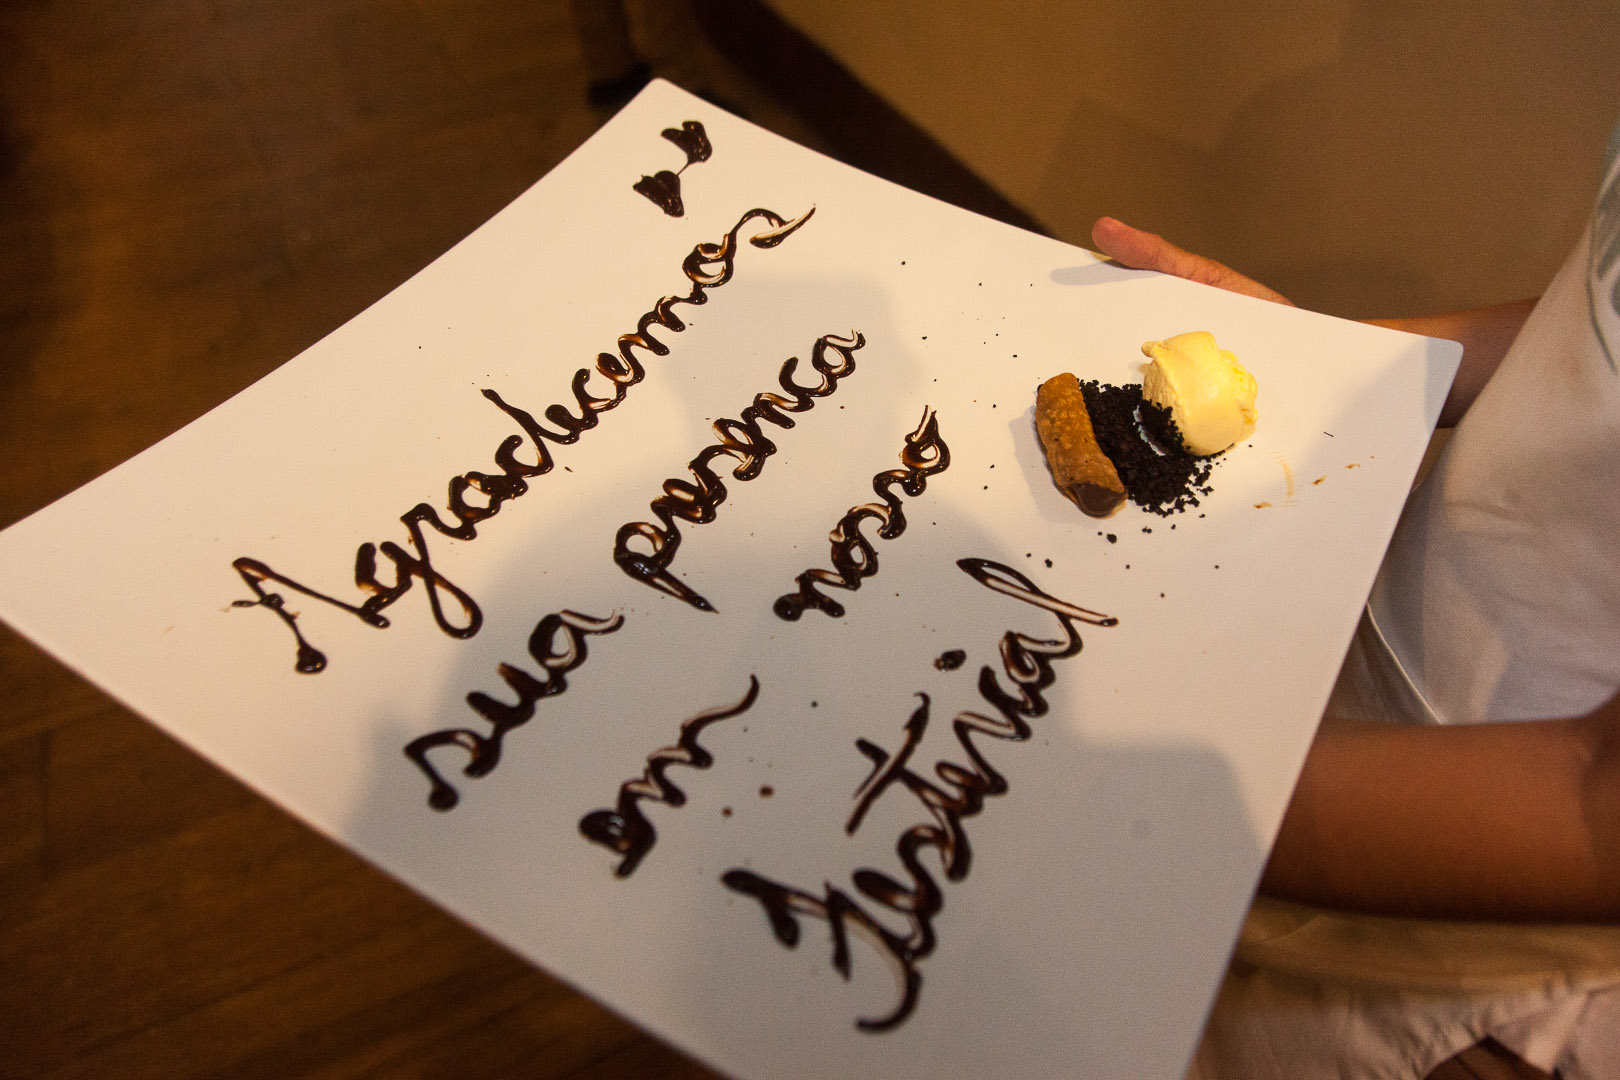 Agradecemos
sua presenca
em nosso
Festival